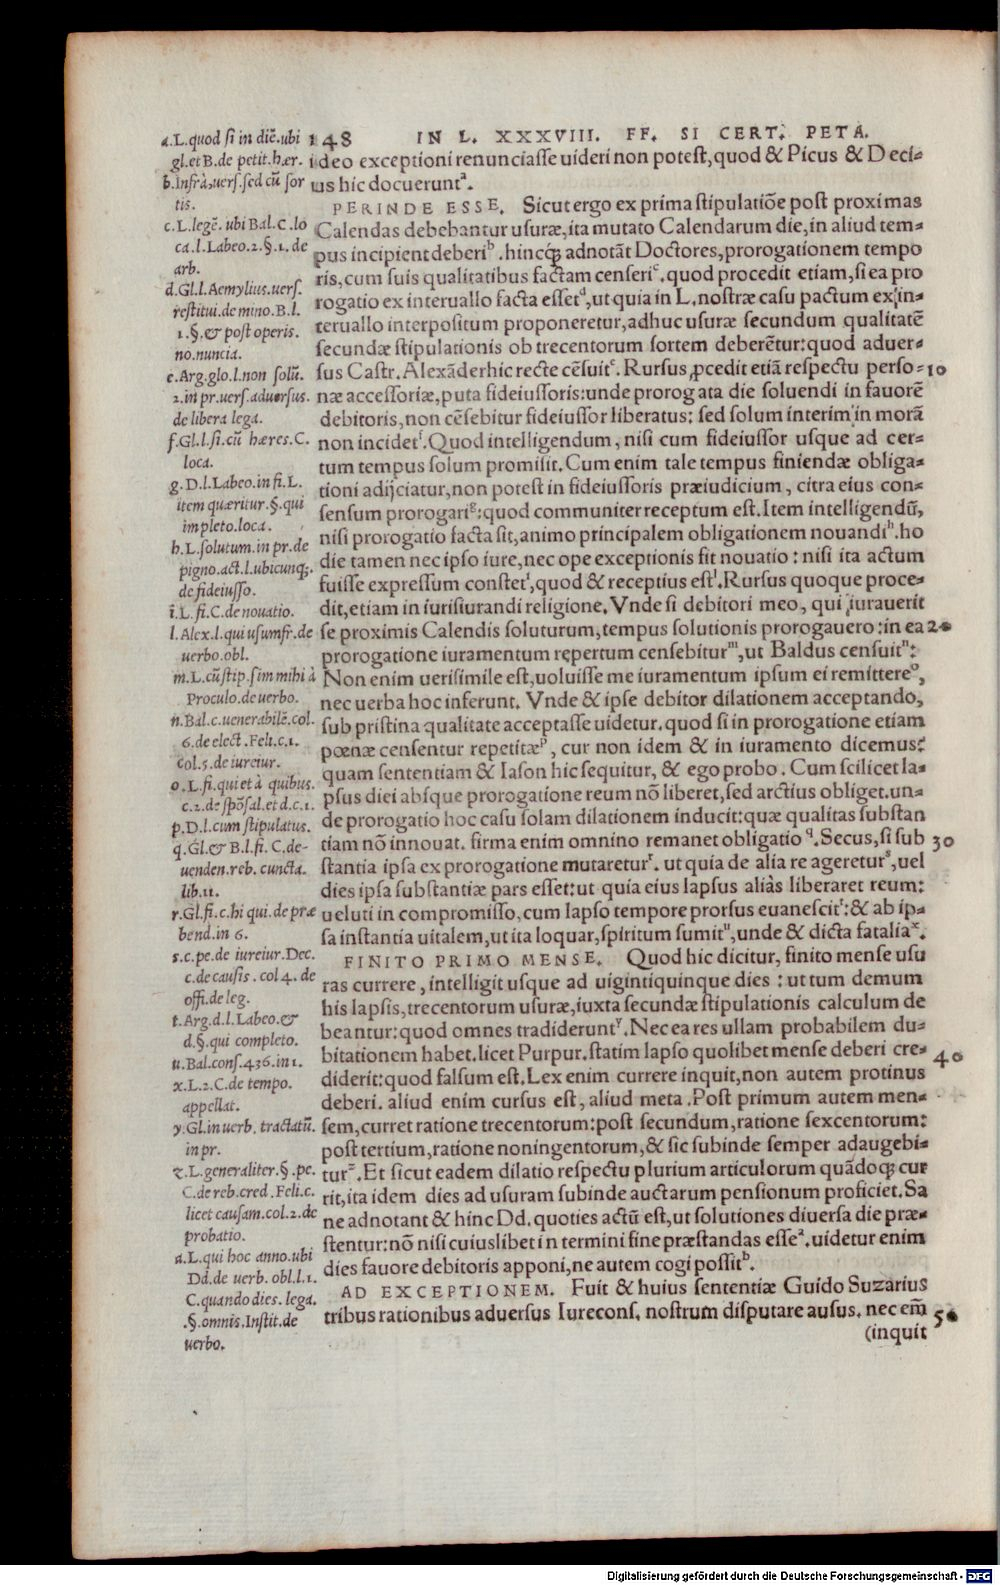 148 IN L. XXXVIII. FF. SI CERT. PETA.
ideo exceptioni renunciasse uideri non potest, quod & Picus & Deci-
us hic docueruntᵃ.
PERINDE ESSE. Sicut ergo ex prima stipulatiõe post proximas
Calendas debebantur usuræ, ita mutato Calendarum die, in aliud tem-
pus incipient deberiᵇ. hincq́; adnotãt Doctores, prorogationem tempo
ris, cum suis qualitatibus factam censeriᶜ. quod procedit etiam, si ea pro
rogatio ex interuallo facta essetᵈ, ut quia in L. nostræ casu pactum ex in-
teruallo interpositum proponeretur, adhuc usuræ secundum qualitatẽ
secundæ stipulationis ob trecentorum sortem deberẽtur: quod aduer-
sus Castr. Alexãder hic recte cẽsuitᵉ. Rursus ꝓcedit etiã respectu perso- 10
næ accessoriæ, puta fideiussoris: unde prorogata die soluendi in fauorẽ
debitoris, non cẽsebitur fideiussor liberatus: sed solum interim in morã
non incidetᶠ. Quod intelligendum, nisi cum fideiussor usque ad cer-
tum tempus solum promisit. Cum enim tale tempus finiendæ obliga-
tioni adijciatur, non potest in fideiussoris præiudicium, citra eius con-
sensum prorogariᵍ: quod communiter receptum est. Item intelligendũ,
nisi prorogatio facta sit, animo principalem obligationem nouandiʰ. ho
die tamen nec ipso iure, nec ope exceptionis fit nouatio: nisi ita actum
fuisse expressum constetⁱ, quod & receptius estˡ. Rursus quoque proce-
dit, etiam in iurisiurandi religione. Vnde si debitori meo, qui iurauerit
se proximis Calendis soluturum, tempus solutionis prorogauero: in ea 20
prorogatione iuramentum repertum censebiturᵐ, ut Baldus censuitⁿ:
Non enim uerisimile est, uoluisse me iuramentum ipsum ei remittereᵒ,
nec uerba hoc inferunt. Vnde & ipse debitor dilationem acceptando,
sub pristina qualitate acceptasse uidetur. quod si in prorogatione etiam
pœnæ censentur repetitæᵖ, cur non idem & in iuramento dicemus?
quam sententiam & Iason hic sequitur, & ego probo. Cum scilicet la-
psus diei absque prorogatione reum nõ liberet, sed arctius obliget. un-
de prorogatio hoc casu solam dilationem inducit: quæ qualitas substan
tiam nõ innouat. firma enim omnino remanet obligatio ᑫ. Secus, si sub 30
stantia ipsa ex prorogatione mutareturʳ. ut quia de alia re ageretur ˢ, uel
dies ipsa substantiæ pars esset: ut quia eius lapsus aliàs liberaret reum:
ueluti in compromisso, cum lapso tempore prorsus euanescitᵗ: & ab ip-
sa instantia uitalem, ut ita loquar, spiritum sumitᵘ, unde & dicta fataliaˣ.
FINITO PRIMO MENSE. Quod hic dicitur, finito mense usu
ras currere, intelligit usque ad uigintiquinque dies: ut tum demum
his lapsis, trecentorum usuræ, iuxta secundæ stipulationis calculum de
beantur: quod omnes tradideruntʸ. Nec ea res ullam probabilem du-
bitationem habet. licet Purpur. statim lapso quolibet mense deberi cre- 40
diderit: quod falsum est. Lex enim currere inquit, non autem protinus
deberi. aliud enim cursus est, aliud meta. Post primum autem men-
sem, curret ratione trecentorum: post secundum, ratione sexcentorum:
post tertium, ratione noningentorum, & sic subinde semper adaugebi-
turᶻ. Et sicut eadem dilatio respectu plurium articulorum quãdoq; cur
rit, ita idem dies ad usuram subinde auctarum pensionum proficiet. Sa
ne adnotant & hinc Dd. quoties actũ est, ut solutiones diuersa die præ-
stentur: nõ nisi cuiuslibet in termini fine præstandas esseᵃ. uidetur enim
dies fauore debitoris apponi, ne autem cogi possitᵇ.
AD EXCEPTIONEM. Fuit & huius sententiæ Guido Suzarius
tribus rationibus aduersus Iurecons. nostrum disputare ausus. nec em̃ 50
(inquit
a. L. quod si in diẽ. ubi
gl. et B. de petit. hær.
b. Infrà, uers. sed cũ sor
tis.
c. L. legẽ. ubi Bal. C. lo
ca. l. Labeo. 2. §. 1. de
arb.
d. Gl. l. Aemylius. uers.
restitui. de mino. B. l.
1. §. & post operis.
no. nuncia.
e. Arg. glo. l. non solũ.
2. in pr. uers. aduersus.
de libera lega.
f. Gl. l. si. cũ hæres. C.
loca.
g. D. l. Labeo. in fi. L.
item quæritur. §. qui
impleto. loca.
h. L. solutum. in pr. de
pigno. act. l. ubicunq;.
de fideiusso.
i. L. fi. C. de nouatio.
l. Alex. l. qui usumfr. de
uerbo. obl.
m. L. cũ stip. sim mihi à
Proculo. de uerbo.
n. Bal. c. uenerabilẽ. col.
6. de elect. Feli. c. 1.
col. 5. de iureiur.
o. L. fi. qui et à quibus.
c. 2. de spõsal. et d. c. 1.
p. D. l. cum stipulatus.
q. Gl. & B. l. fi. C. de-
uenden. reb. cuncta.
lib. 11.
r. Gl. fi. c. hi qui. de præ
bend. in 6.
s. c. pe. de iureiur. Dec.
c. de causis. col 4. de
offi. de leg.
t. Arg. d. l. Labeo. &
d. §. qui completo.
u. Bal. cons. 436. in 1.
x. L. 2. C. de tempo.
appellat.
y. Gl. in uerb. tractatũ.
in pr.
z. L. generaliter. §. pe.
C. de reb. cred. Feli. c.
licet causam. col. 2. de
probatio.
a. L. qui hoc anno. ubi
Dd. de uerb. obl. l. 1.
C. quando dies. lega.
.§. omnis. Instit. de
uerbo.
Digitalisierung gefördert durch die Deutsche Forschungsgemeinschaft - DFG